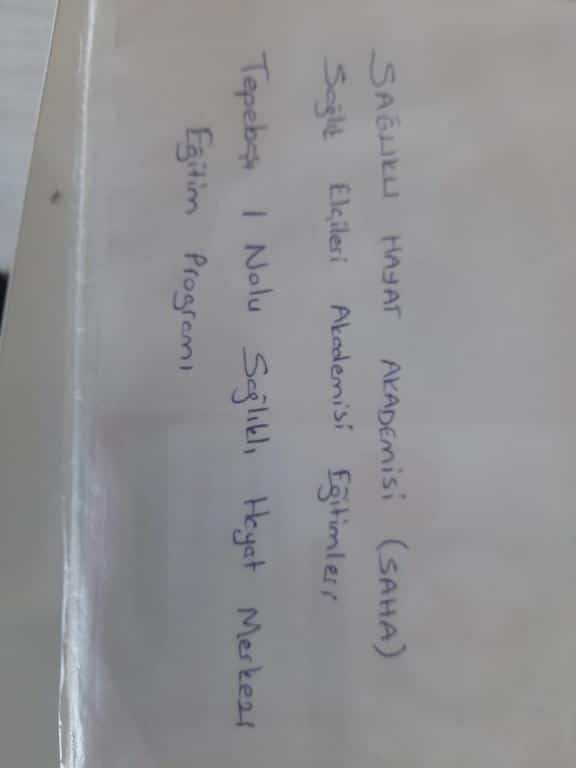 SAĞLIKLI HAYAT AKADEMİSİ (SAHA)
Sağlık Elçileri Akademisi Eğitimleri
Tepebaşı 1 Nolu Sağlıklı Hayat Merkezi
Eğitim Programı